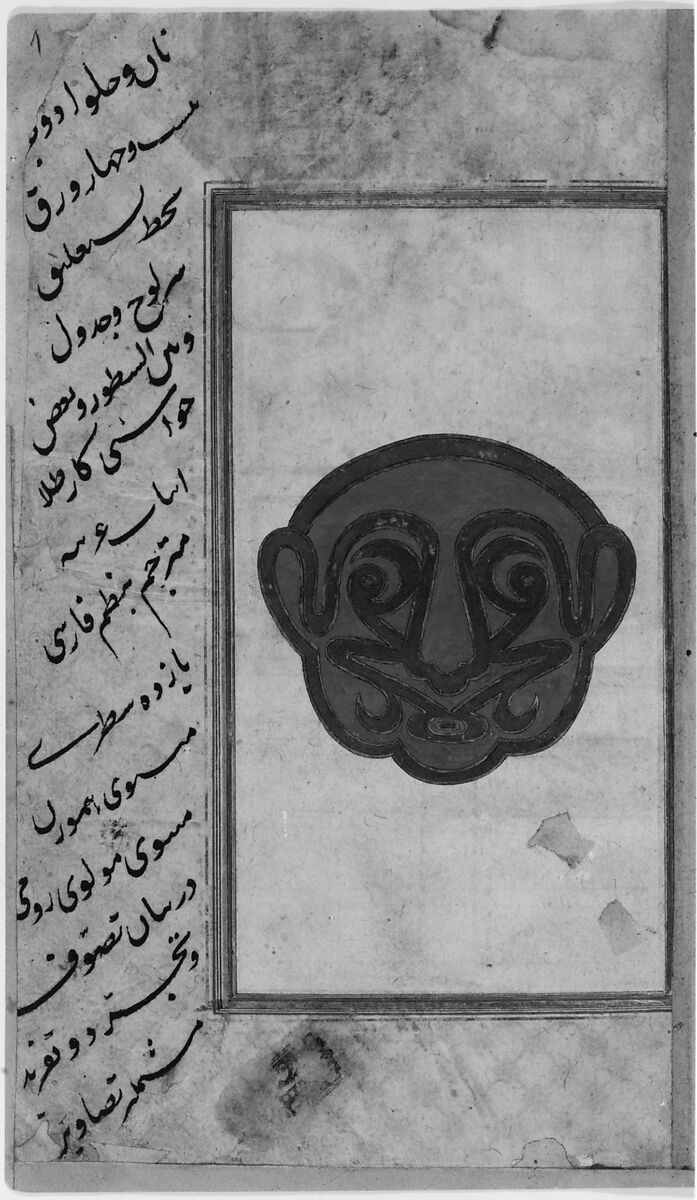 نان و حلوا دو
و چهار ورق
بخط نستعلیق
سرلوح و جدول
و بین السطور و بعض
حواشی کار طلا
ابیات عربیه
مترجم بنظم فارسی
یازده سطری
مثنوی
مثنوی مولوی رومی
در بیان تصوف
و تجرد و تفرید
مشتمله تصاویر